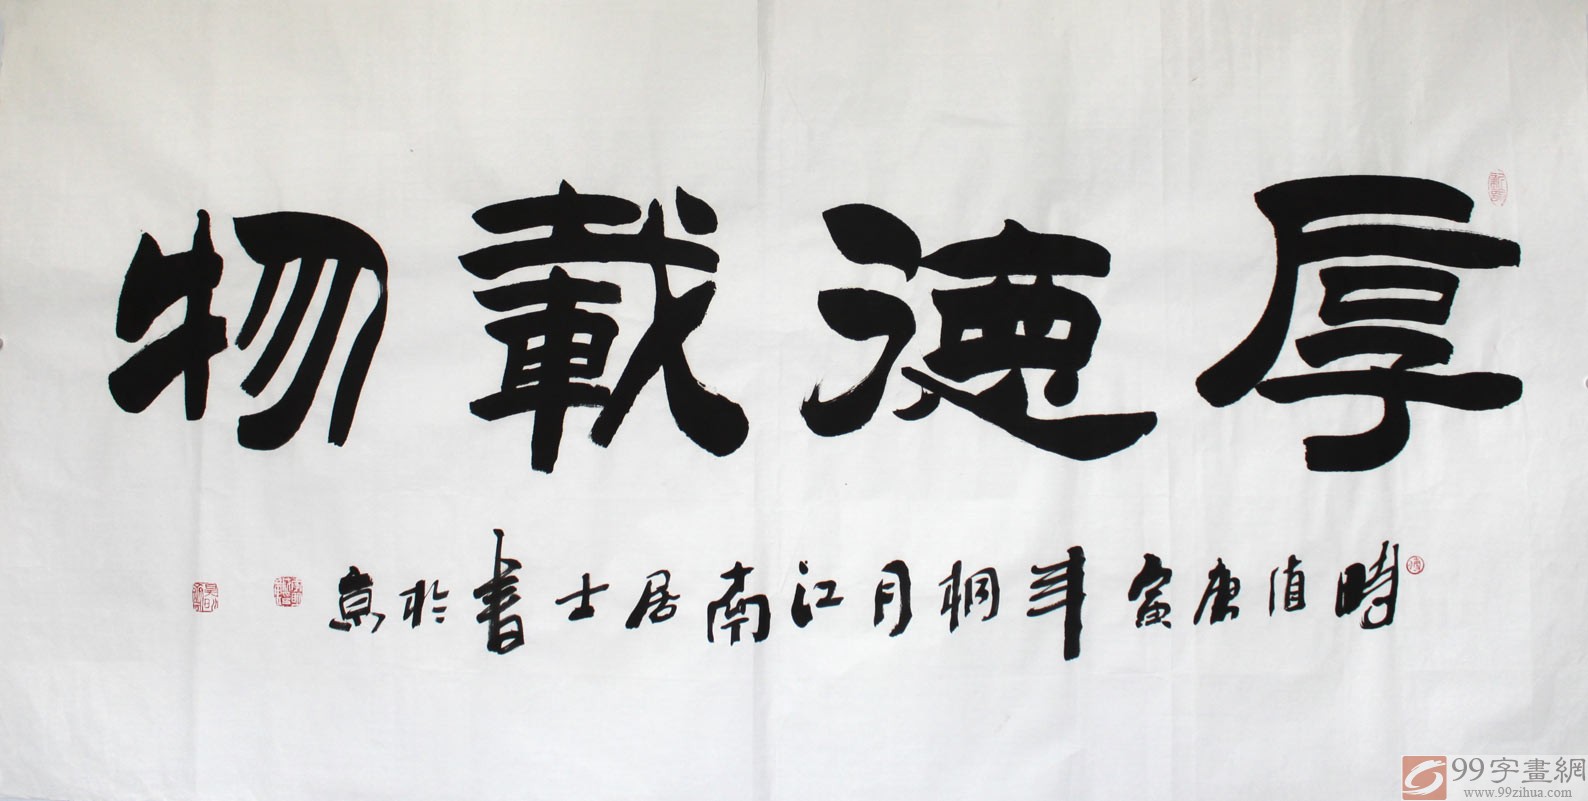 厚德載物
時值庚寅年桐月江南居士書於京
99字畫網
www.99zihua.com